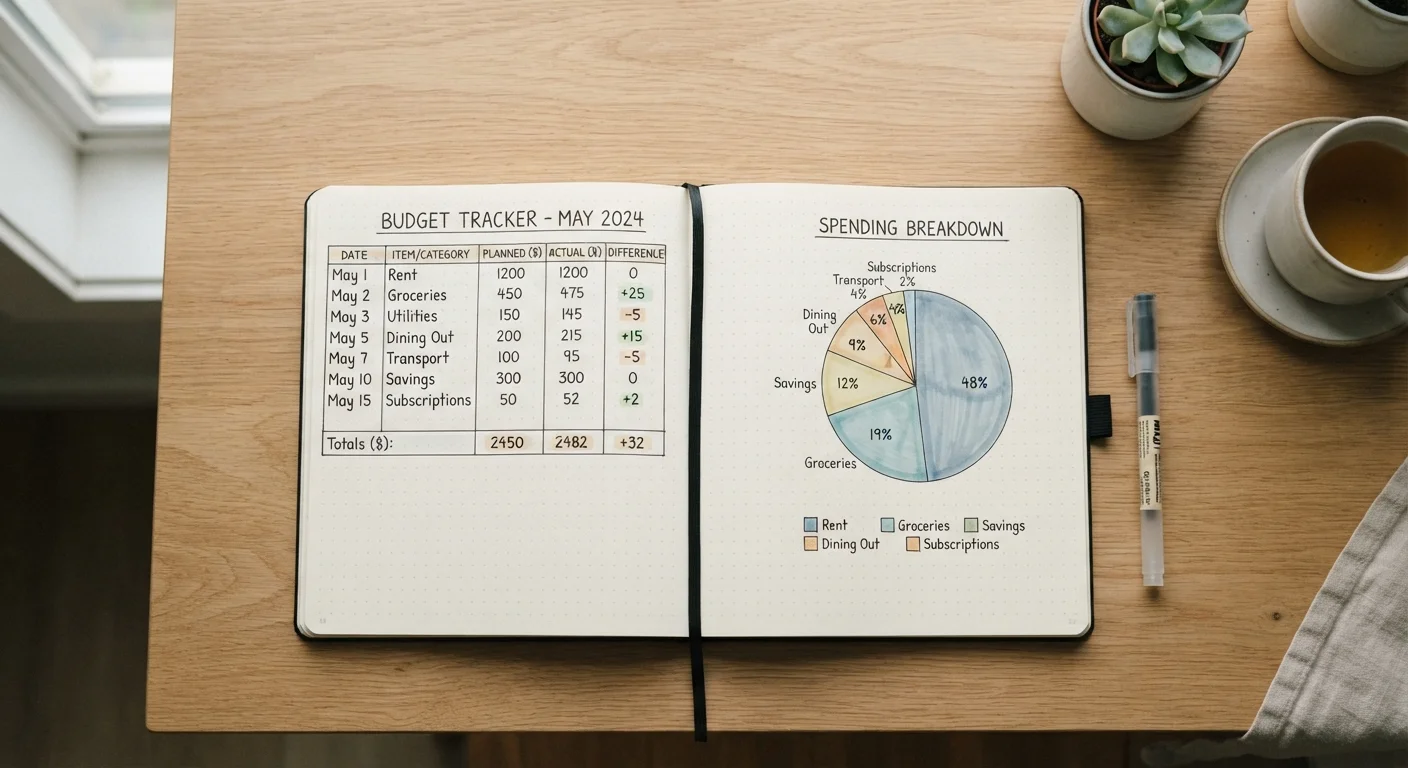 BUDGET TRACKER - MAY 2024
DATE ITEM/CATEGORY PLANNED ($) ACTUAL ($) DIFFERENCE
May 1 Rent 1200 1200 0
May 2 Groceries 450 475 +25
May 3 Utilities 150 145 -5
May 5 Dining Out 200 215 +15
May 7 Transport 100 95 -5
May 10 Savings 300 300 0
May 15 Subscriptions 50 52 +2
Totals ($): 2450 2482 +32
SPENDING BREAKDOWN
Subscriptions
2%
Transport
4%
Dining
Out
4%
6%
9%
Savings
12%
48%
19%
Groceries
Rent Groceries Savings
Dining Out Subscriptions